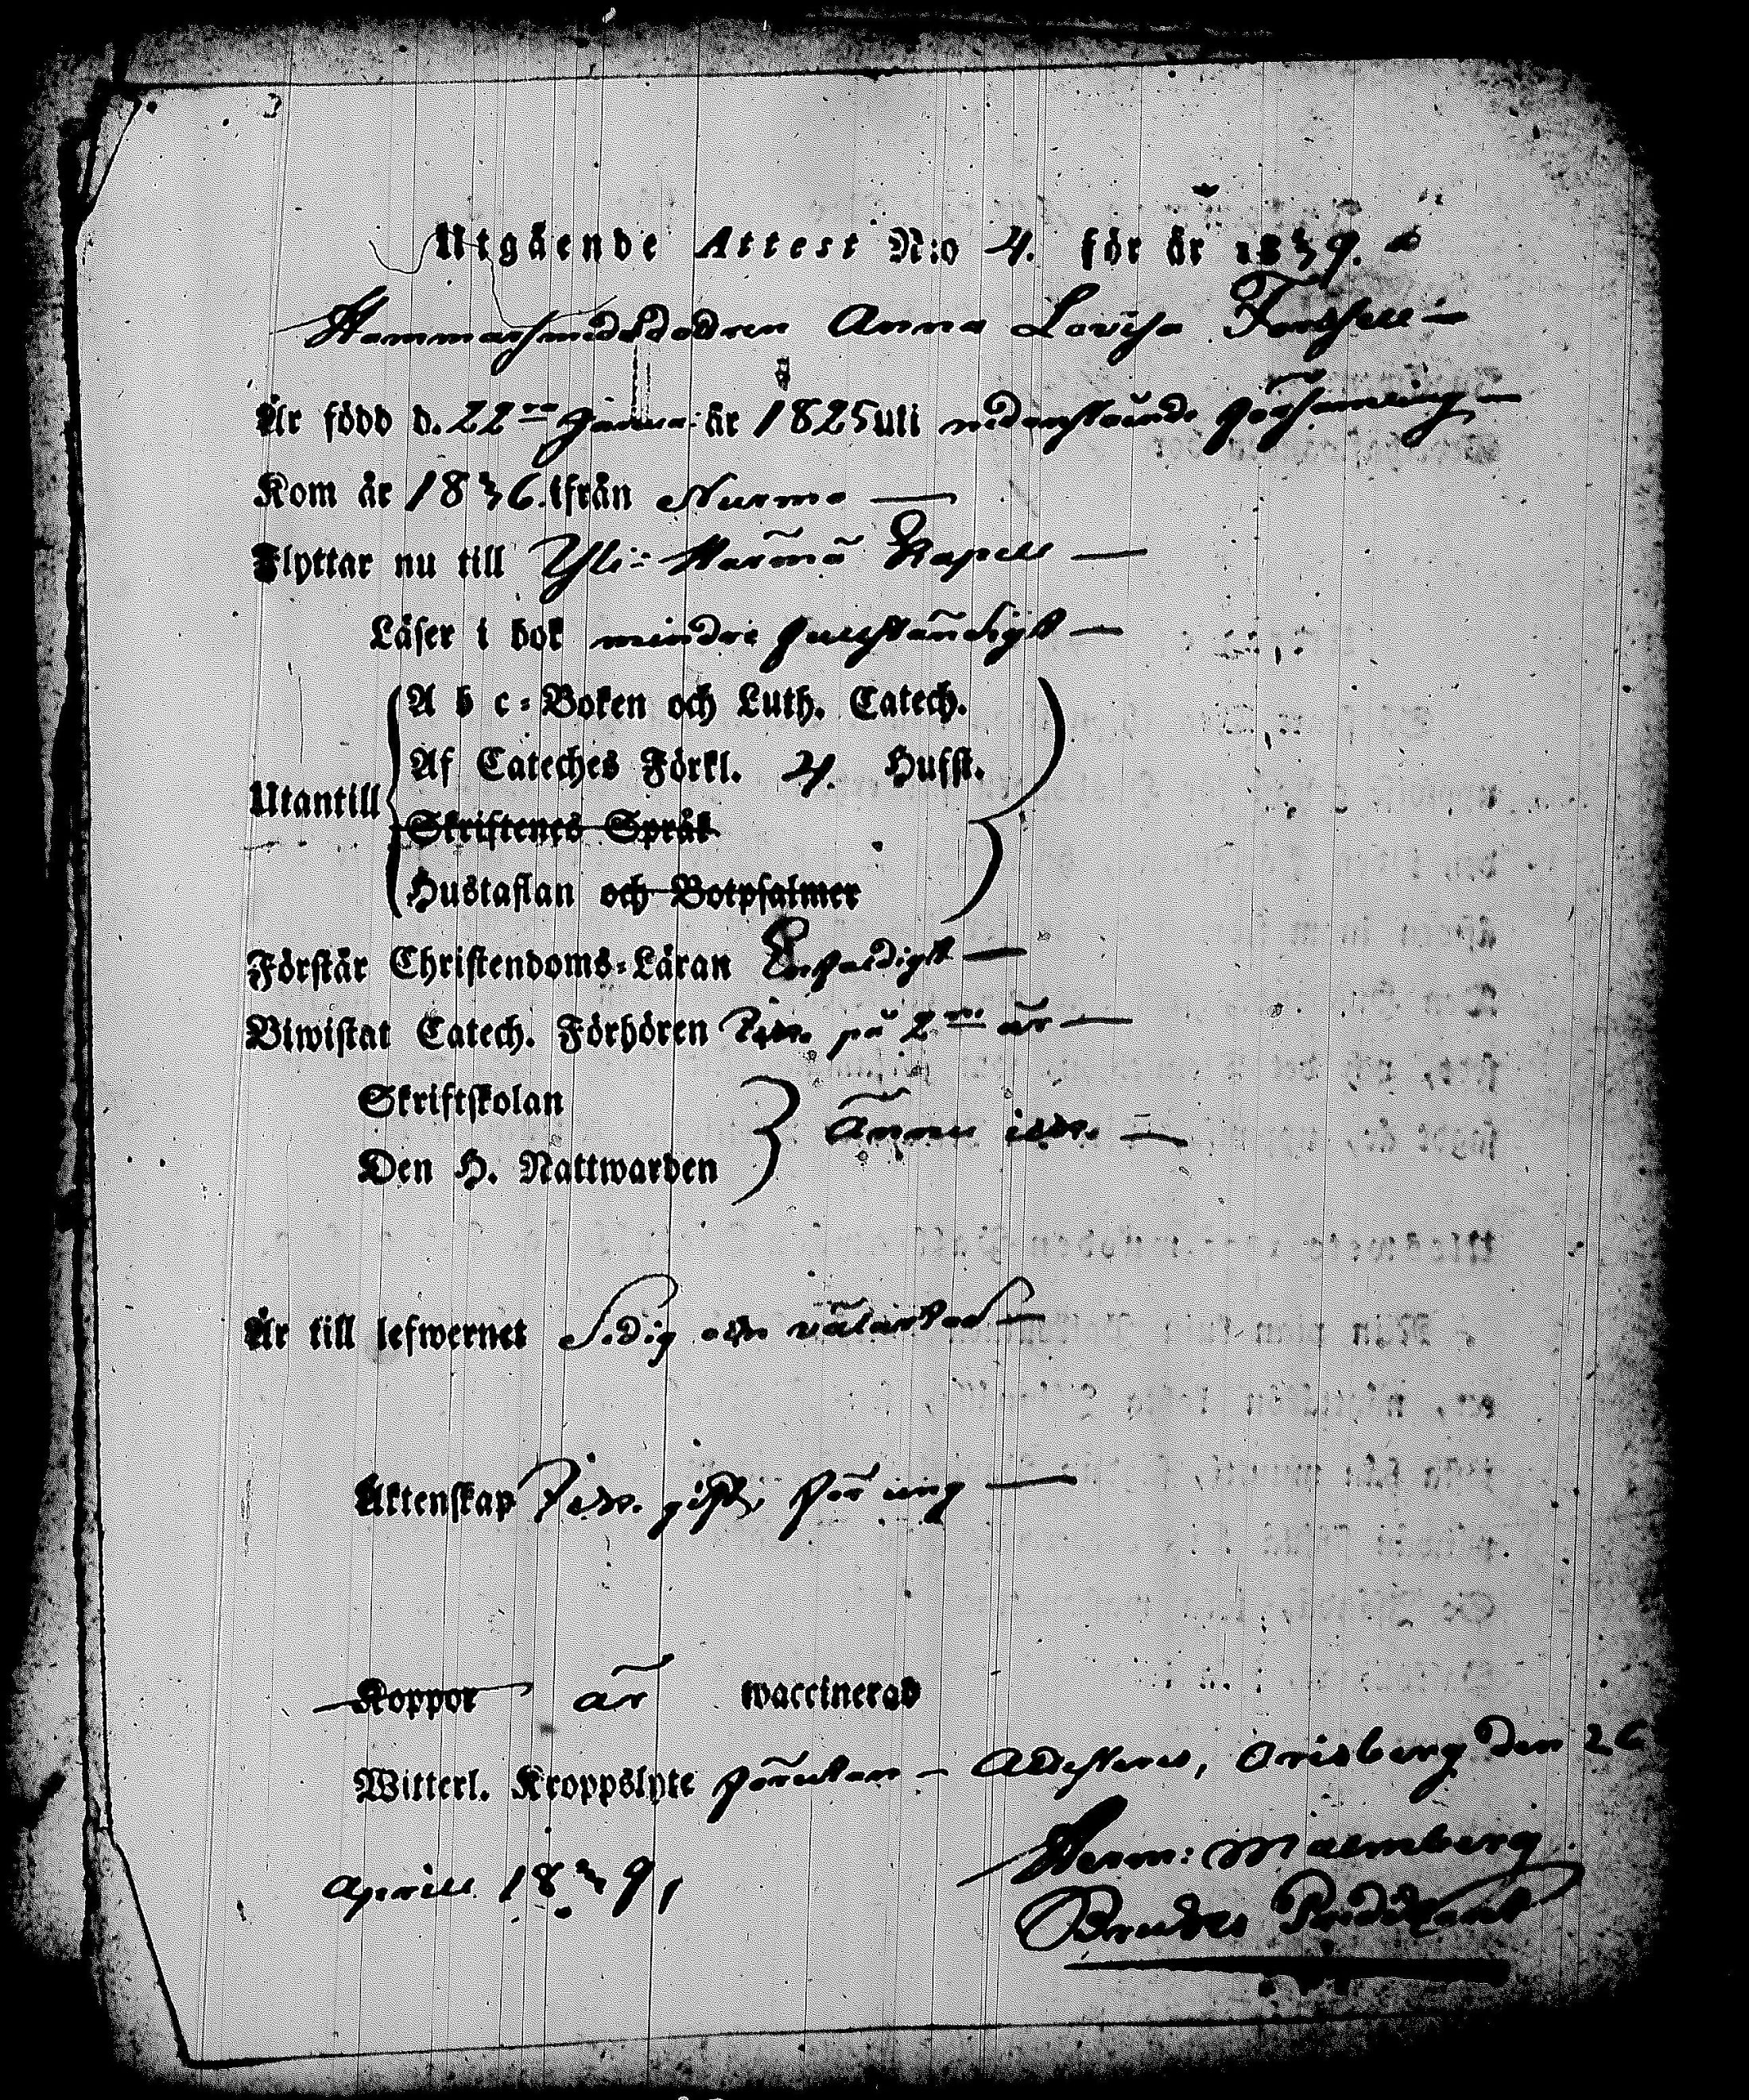 Utgående Attest N:o 4. för år 1839.
Hammarsmedsdodren Anna Lovisa Forssell
Är född d. 22 Janua: år 1825 uti nedanstående församling
Kom år 1836. ifrån Nurmo
Flyttar nu till Yli-Härmä Kapell
Läser i bok mindre fullständigt
A b c-Boken och Luth. Catech.
Af Cateches Förkl. 4. Hufst.
Utantill
Skriftenes Språk
Hustaflan och Botpsalmer
Förstår Christendoms-Läran Enfaldigt
Biwistat Catech. Förhören på 2 år
Skriftskolan
Den H. Nattwarden
ännu icke
Är till lefwernet Sedig och välartad
Äktenskap för ung
Koppor är waccinerad
Witterl. Kroppslyte förutan - Attesteras, Orisberg den 26
Aprill 1839,
Herm: Malmberg.
Bruks Predikant